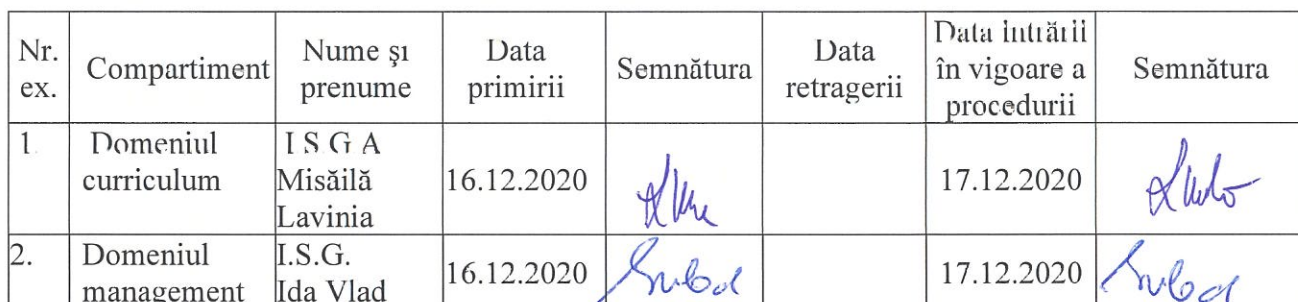 Nr. ex. Compartiment Nume şi prenume Data primirii Semnătura Data retragerii Data intrării în vigoare a procedurii Semnătura
1. Domeniul curriculum I.S.G.A Misăilă Lavinia 16.12.2020 17.12.2020
2. Domeniul management I.S.G. Ida Vlad 16.12.2020 17.12.2020